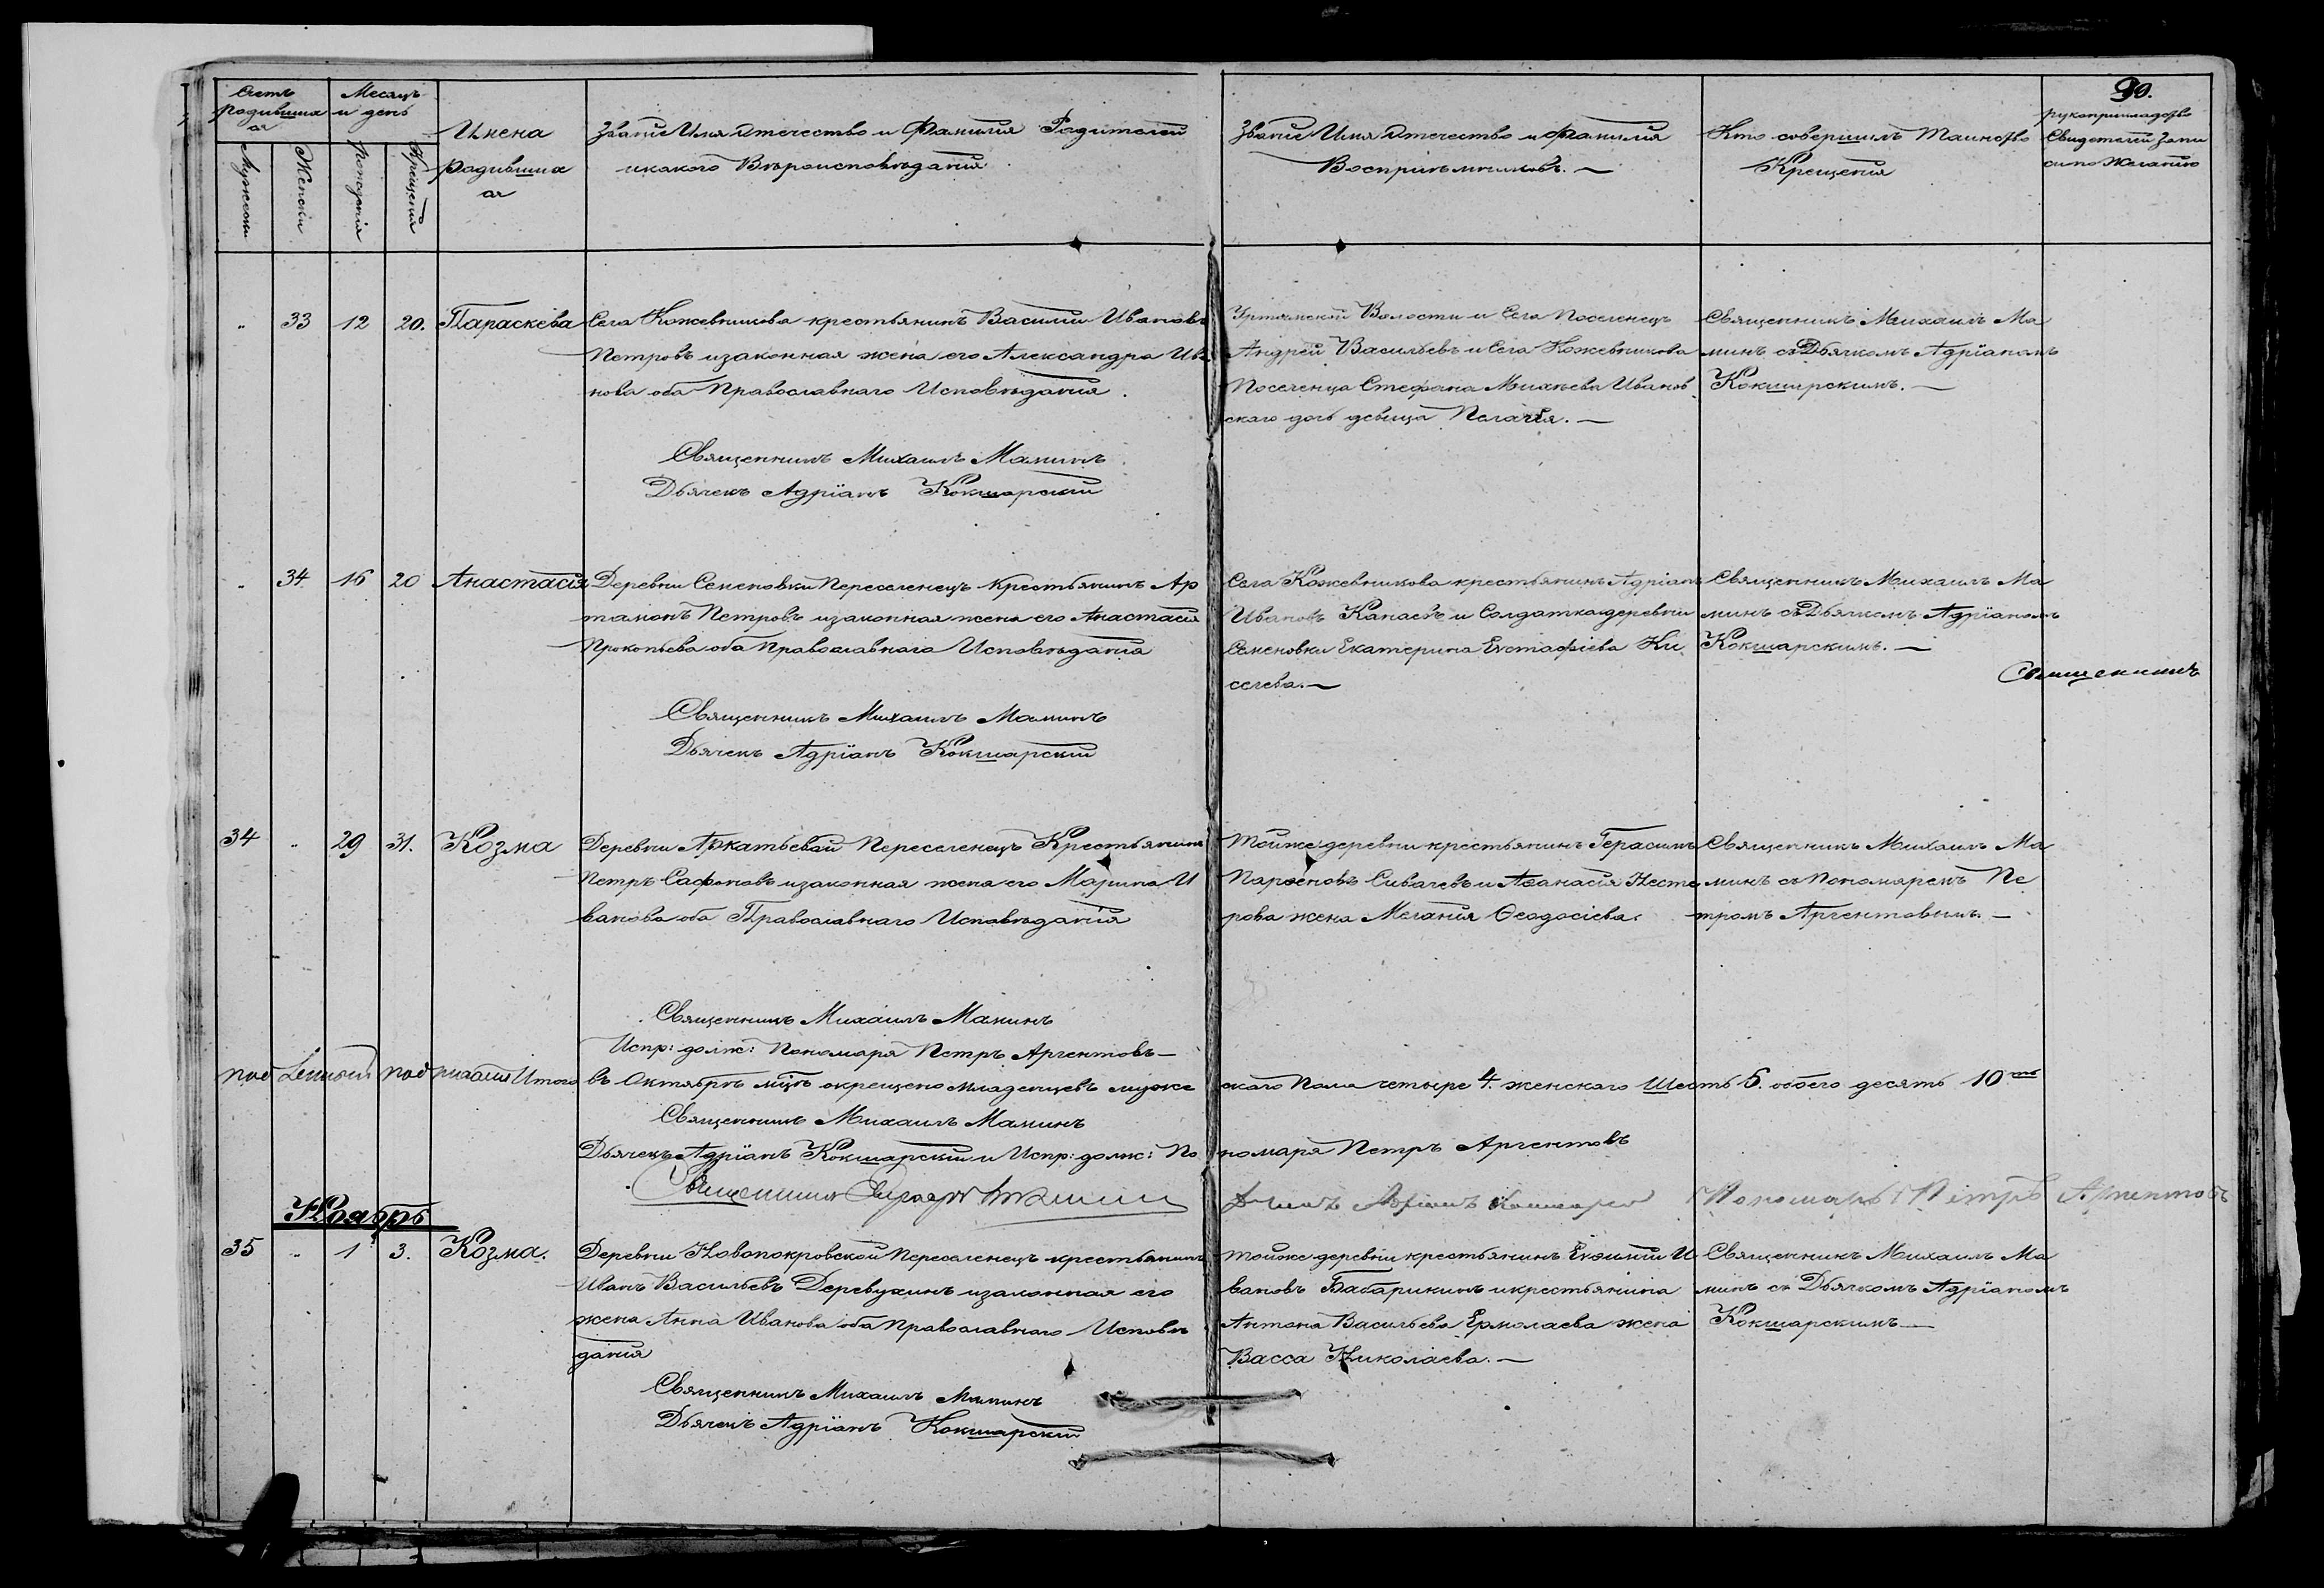 Счетъ
родившиха
ся
Месяцъ
и день
Имена
Родившиха
ся
Звание Имя Отечество и Фамилия Родителей
и какого Вѣроисповѣдания
Мужески
Женски
рождения
Крещения
Звание Имя Отечество и Фамилия
Воспрiемниковъ. —
Кто совершилъ Таинство
Крещения
30.
рукоприкладство
Свидетелей запи
си по Желанию
„ 33 12 20. Параскева
Села Кожевникова крестьянинъ Василий Ивановъ
Петровъ и законная жена его Александра Ива
нова оба Православнаго Исповѣдания.
Священникъ Михаилъ Маминъ
Дьячекъ Адрiанъ Кокшарский
Уртамской Волости и Села Поселенецъ
Андрей Васильевъ и Села Кожевникова
Поселенца Стефана Михѣева Иванов
скаго дочь девица Пелагѣя. —
Священникъ Михаилъ Ма
минъ съ Дьячкомъ Адрiаномъ
Кокшарскимъ. —
„ 34 16 20 Анастасiя
Деревни Семеновки Переселенецъ крестьянинъ Ар
тамонъ Петровъ и законная жена его Анастасия
Прокопьева оба Православнаго Исповѣдания
Священникъ Михаилъ Маминъ
Дьячекъ Адрiанъ Кокшарский
Села Кожевникова крестьянинъ Адрiанъ
Ивановъ Канаевъ и Солдатка деревни
Семеновки Екатерина Евстафiева Ки
селева. —
Священникъ Михаилъ Ма
минъ съ Дьячкомъ Адрiаномъ
Кокшарскимъ. —
Священникъ
34 „ 29 31. Козма
Деревни Аркатьевой Переселенецъ Крестьянинъ
Петръ Сафоновъ и законная жена его Марина И
ванова оба Православнаго Исповѣдания
Священникъ Михаилъ Маминъ
Испр: должс: Пономаря Петръ Аргентовъ —
Тойже деревни крестьянинъ Герасимъ
Парѳеновъ Сивачевъ и Аѳанасiя Несте
рова жена Мелания Ѳеодосiева.
Священникъ Михаилъ Ма
минъ съ Пономаремъ Пе
тромъ Аргентовымъ. —
Итого въ Октябрѣ мцѣ окрещено младенцевъ муже
скаго пола четыре 4. женскаго Шесть 6. обоего десять 10ть
Священникъ Михаилъ Маминъ
Дьячекъ Адрiанъ Кокшарский и Испр: должс: По
номаря Петръ Аргентовъ
Священникъ
Пономарь Петръ Аргентовъ
Ноябрь
35 „ 1 3. Козма.
Деревни Новопокровской Переселенецъ крестьянинъ
Иванъ Васильевъ Деревухинъ и законная его
жена Анна Иванова оба Православнаго Исповѣ
дания
Священникъ Михаилъ Маминъ
Дьячекъ Адрiанъ Кокшарский
Тойже деревни крестьянинъ Евѳимий И
вановъ Бабарикинъ и крестьянина
Антона Васильева Ермолаева жена
Васса Николаева. —
Священникъ Михаилъ Ма
минъ съ Дьячкомъ Адрiаномъ
Кокшарскимъ —